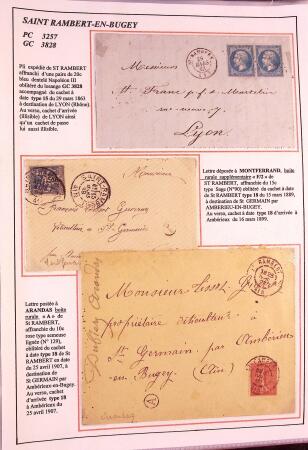 SAINT RAMBERT-EN-BUGEY
PC 3257
GC 3828
Pli expédié de ST RAMBERT
affranchi d'une paire du 20c
bleu dentelé Napoléon III
oblitéré du losange GC 3828
accompagné du cachet à
date type 18 du 29 mars 1863
à destination de LYON (Rhône).
Au verso, cachet d'arrivée
(illisible) de LYON ainsi
qu'un cachet de passe
lui aussi illisible.
Messieurs
Lyon
Lettre déposée à MONTFERRAND, boîte
rurale supplémentaire « F/2 » de
ST RAMBERT, affranchie du 15c
type Sage (N°90) oblitéré du cachet à date de
ST RAMBERT type 18 du 15 mars 1889,
à destination de ST GERMAIN par
AMBERIEU-EN-BUGEY.
Au verso, cachet à date type 18 d'arrivée à
Ambérieux du 16 mars 1889.
Monsieur
St Germain
Lettre postée à
ARANDAS boîte
rurale « A » de
ST RAMBERT,
affranchie du 10c
rose type semeuse
lignée (N° 129),
oblitéré du cachet
à date type 18 de
St RAMBERT
en date du
25 avril 1907,
à destination de
ST GERMAIN par
Ambérieux-en-Bugey.
Au verso, cachet
d'arrivée type 18
à Ambérieux du
25 avril 1907.
Monsieur
propriétaire viticulteur à
St Germain, par Ambérieu
en Bugey (Ain)
A